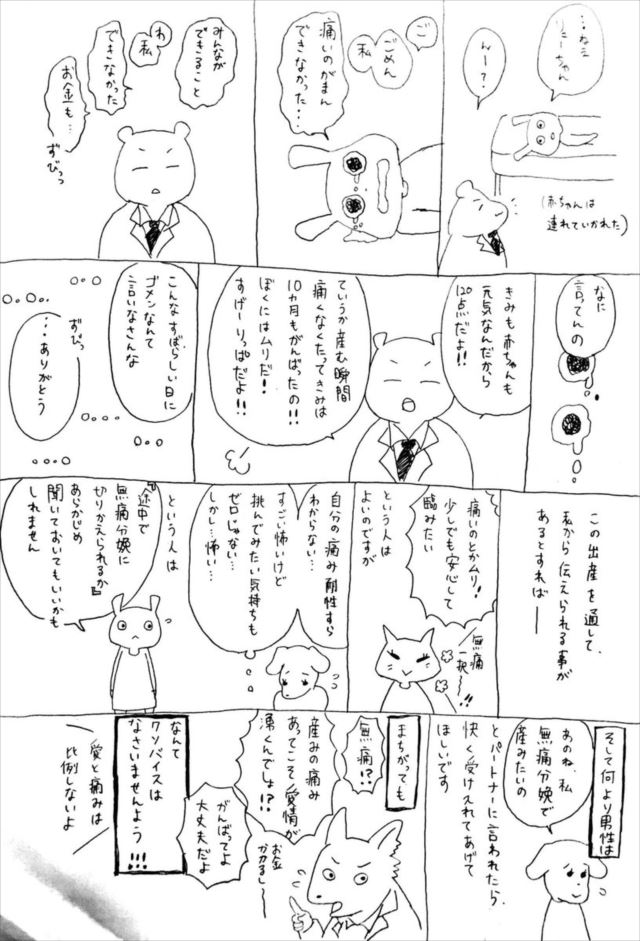 …ねえ
りたーちゃん
んー？
(赤ちゃんは
連れていかれた)
ご
ごめん
私
痛いのがまん
できなかった…
みんなが
できること
わ
私
できなかった
お金も…
ずびっっ
なに
言ってんの
きみも赤ちゃんも
元気なんだから
120点だよ!!
ていうか産む瞬間
痛くなくたってきみは
10ヵ月もがんばったの!!
ぼくにはムリだ!
すげーりっぱだよ!!
こんなすばらしい日に
ゴメンなんて
言いなさんな
ずびっ
…ありがとう
この出産を通して、
私から伝えられる事が
あるとすれば―
痛いのとかムリ!
少しでも安心して
臨みたい
無痛
一択～!!
という人は
よいのですが
自分の痛み耐性すら
わからない…
すごい怖いけど
挑んでみたい気持ちも
ゼロじゃない…
しかし…怖い…
という人は
『途中で
無痛分娩に
切りかえられるか』
あらかじめ
聞いておいてもいいかも
しれません
そして何より男性は
あのね、私
無痛分娩で
産みたいの
とパートナーに言われたら、
快く受け入れてあげて
ほしいです
まちがっても
無痛!?
産みの痛み
あってこそ愛情が
湧くんでしょ!?
お金
かかるし～
がんばってよ
大丈夫だよ
なんて
クソバイスは
なさいませんよう!!!
愛と痛みは
比例しないよ